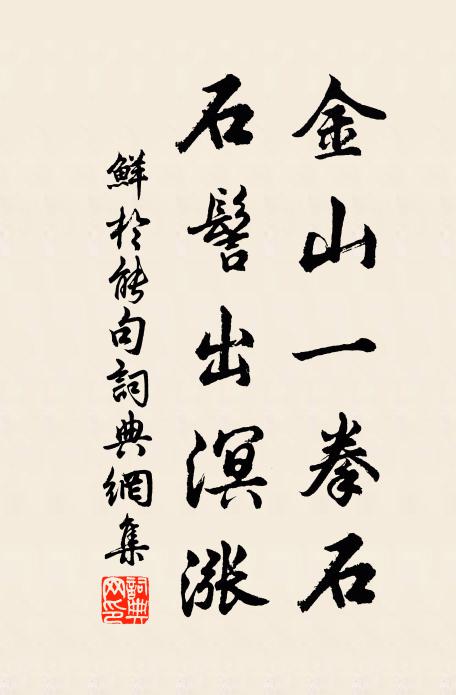 金山一拳石
石髻出溟漲
鮮於能句詞典網集
詞典網印